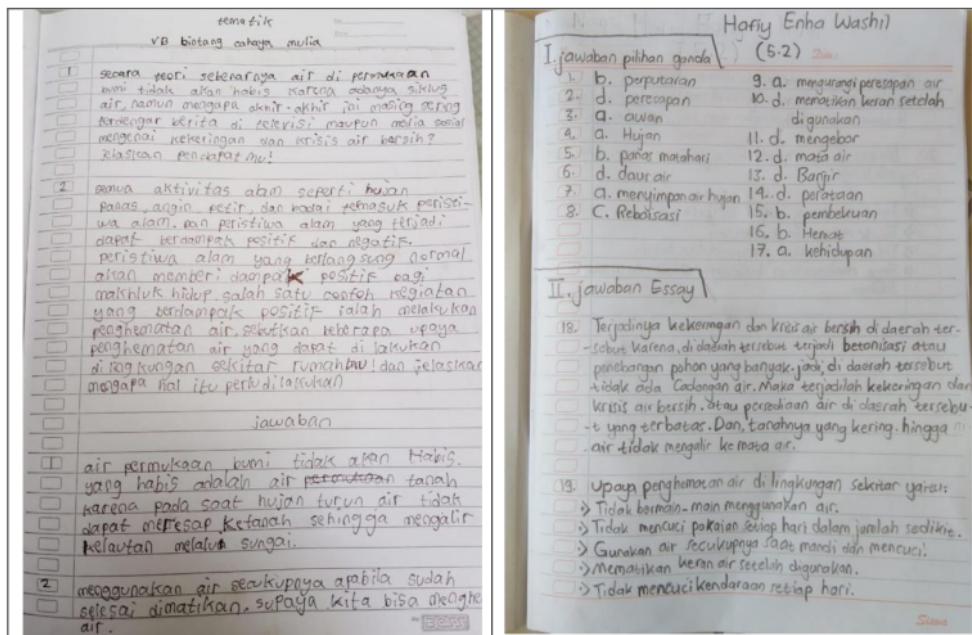 tematik
VB bintang cahaya mulia
1 secara teori sebenarnya air di permukaan
bumi tidak akan habis karena adanya siklus
air, namun mengapa akhir-akhir ini masing sering
terdengar berita di televisi maupun media sosial
mengenai kekeringan dan krisis air bersih?
jelaskan pendapat mu!
2 semua aktivitas alam seperti hujan
panas, angin petir, dan badai temasuk peristi-
wa alam. dan peristiwa alam yang terjadi
dapat berdampak positif dan negatif.
peristiwa alam yang berlangsung normal
akan memberi dampak positif bagi
makhluk hidup. salah satu contoh kegiatan
yang berdampak positif ialah melakukan
penghematan air. sebutkan beberapa upaya
penghematan air yang dapat di lakukan
di lingkungan sekitar rumahmu! dan jelaskan
mengapa hal itu perlu dilakukan
jawaban
1 air permukaan bumi tidak akan Habis.
yang habis adalah air tanah
karena pada saat hujan turun air tidak
dapat meresap ketanah sehingga mengalir
kelautan melalui sungai.
2 menggunakan air secukupnya apabila sudah
selesai dimatikan, supaya kita bisa menghe
air.
Hafiy Enha Washil
(5.2)
I. jawaban pilihan ganda
1. b. perputaran
2. d. peresapan
3. a. awan
4. a. Hujan
5. b. panas matahari
6. d. daur air
7. a. menyimpan air hujan
8. C. Reboisasi
9. a. mengurangi peresapan air
10. d. mematikan keran setelah
digunakan
11. d. mengebor
12. d. mata air
13. d. Banjir
14. d. perataan
15. b. pembekuan
16. b. Hemat
17. a. kehidupan
II. jawaban Essay
18. Terjadinya kekeringan dan krisis air bersih di daerah ter-
-sebut karena, di daerah tersebut terjadi betonisasi atau
penebangan pohon yang banyak. jadi, di daerah tersebut
tidak ada Cadangan air. Maka terjadilah kekeringan dan
krisis air bersih. atau persediaan air di daerah tersebu-
-t yang terbatas. Dan, tanahnya yang kering. hingga
air tidak mengalir ke mata air.
19. upaya penghematan air di lingkungan sekitar yaitu:
-> Tidak bermain-main menggunakan air.
-> Tidak mencuci pakaian setiap hari dalam jumlah sedikit.
-> Gunakan air secukupnya saat mandi dan mencuci.
-> Mematikan keran air setelah digunakan.
-> Tidak mencuci kendaraan setiap hari.